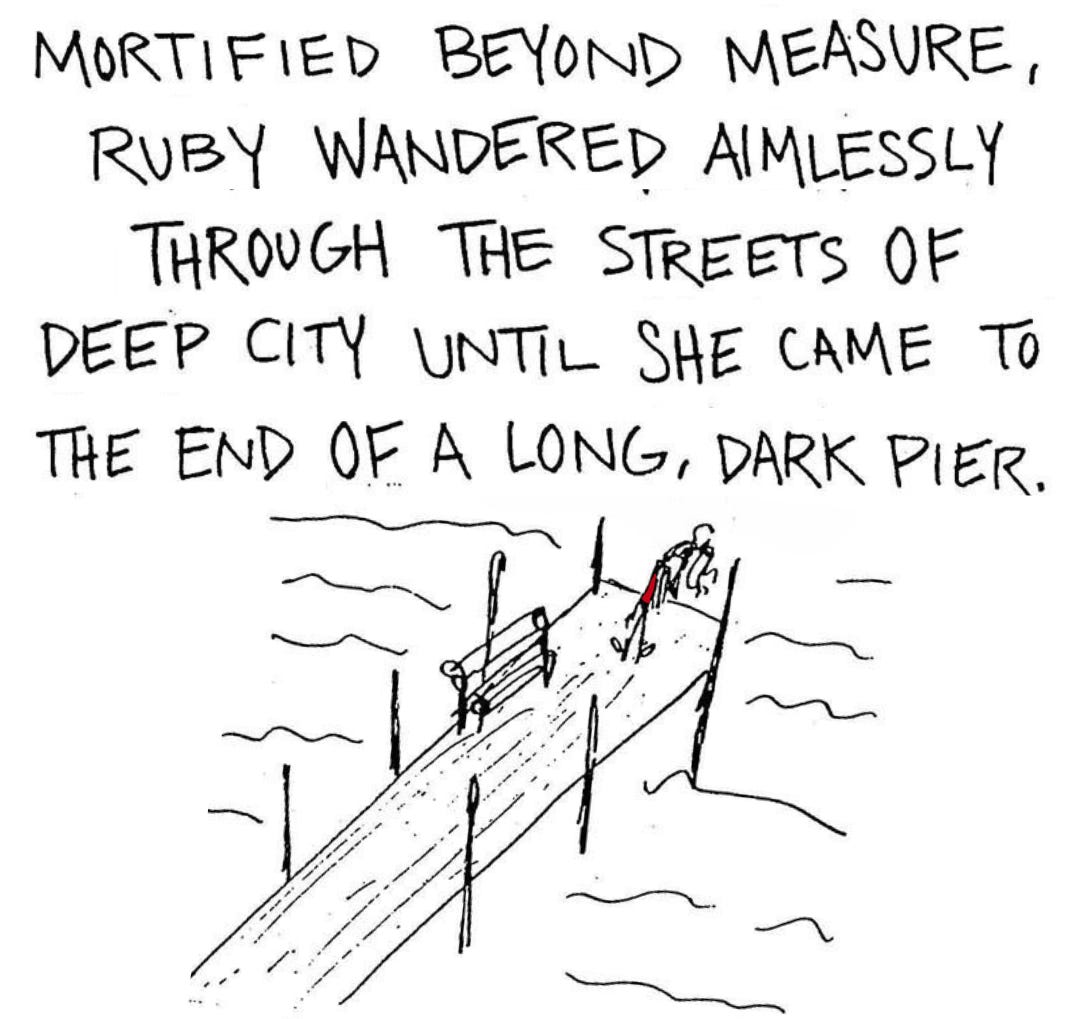 MORTIFIED BEYOND MEASURE,
RUBY WANDERED AIMLESSLY
THROUGH THE STREETS OF
DEEP CITY UNTIL SHE CAME TO
THE END OF A LONG, DARK PIER.